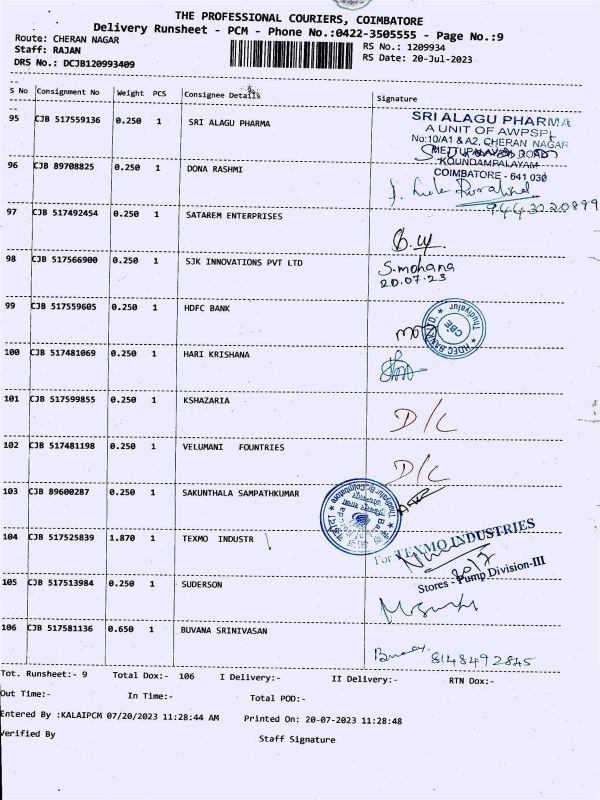 THE PROFESSIONAL COURIERS, COIMBATORE
Delivery Runsheet - PCM - Phone No.:0422-3505555 - Page No.:9
Route: CHERAN NAGAR
RS No.: 1209934
Staff: RAJAN
RS Date: 20-Jul-2023
DRS No.: DCJB120993409
S No Consignment No Weight PCS Consignee Details Signature
95 CJB 517559136 0.250 1 SRI ALAGU PHARMA
SRI ALAGU PHARMA
A UNIT OF AWPSPL
No:10/A1 & A2, CHERAN NAGAR
METTUPALAYAM ROAD
KOUNDAMPALAYAM
COIMBATORE - 641 030
96 CJB 89708825 0.250 1 DONA RASHMI
9443020899
97 CJB 517492454 0.250 1 SATAREM ENTERPRISES
98 CJB 517566900 0.250 1 SJK INNOVATIONS PVT LTD
S.mohana
20.07.23
99 CJB 517559605 0.250 1 HDFC BANK
HDFC BANK LTD. Thudiyalur
CBE
100 CJB 517481069 0.250 1 HARI KRISHANA
101 CJB 517599855 0.250 1 KSHAZARIA
D/L
102 CJB 517481198 0.250 1 VELUMANI FOUNTRIES
D/L
103 CJB 89600287 0.250 1 SAKUNTHALA SAMPATHKUMAR
104 CJB 517525839 1.870 1 TEXMO INDUSTR
For TEXMO INDUSTRIES
Stores - Pump Division-III
105 CJB 517513984 0.250 1 SUDERSON
106 CJB 517581136 0.650 1 BUVANA SRINIVASAN
8148492845
Tot. Runsheet:- 9 Total Dox:- 106 I Delivery:- II Delivery:- RTN Dox:-
Out Time:- In Time:- Total POD:-
Entered By :KALAIPCM 07/20/2023 11:28:44 AM Printed On: 20-07-2023 11:28:48
Verified By Staff Signature